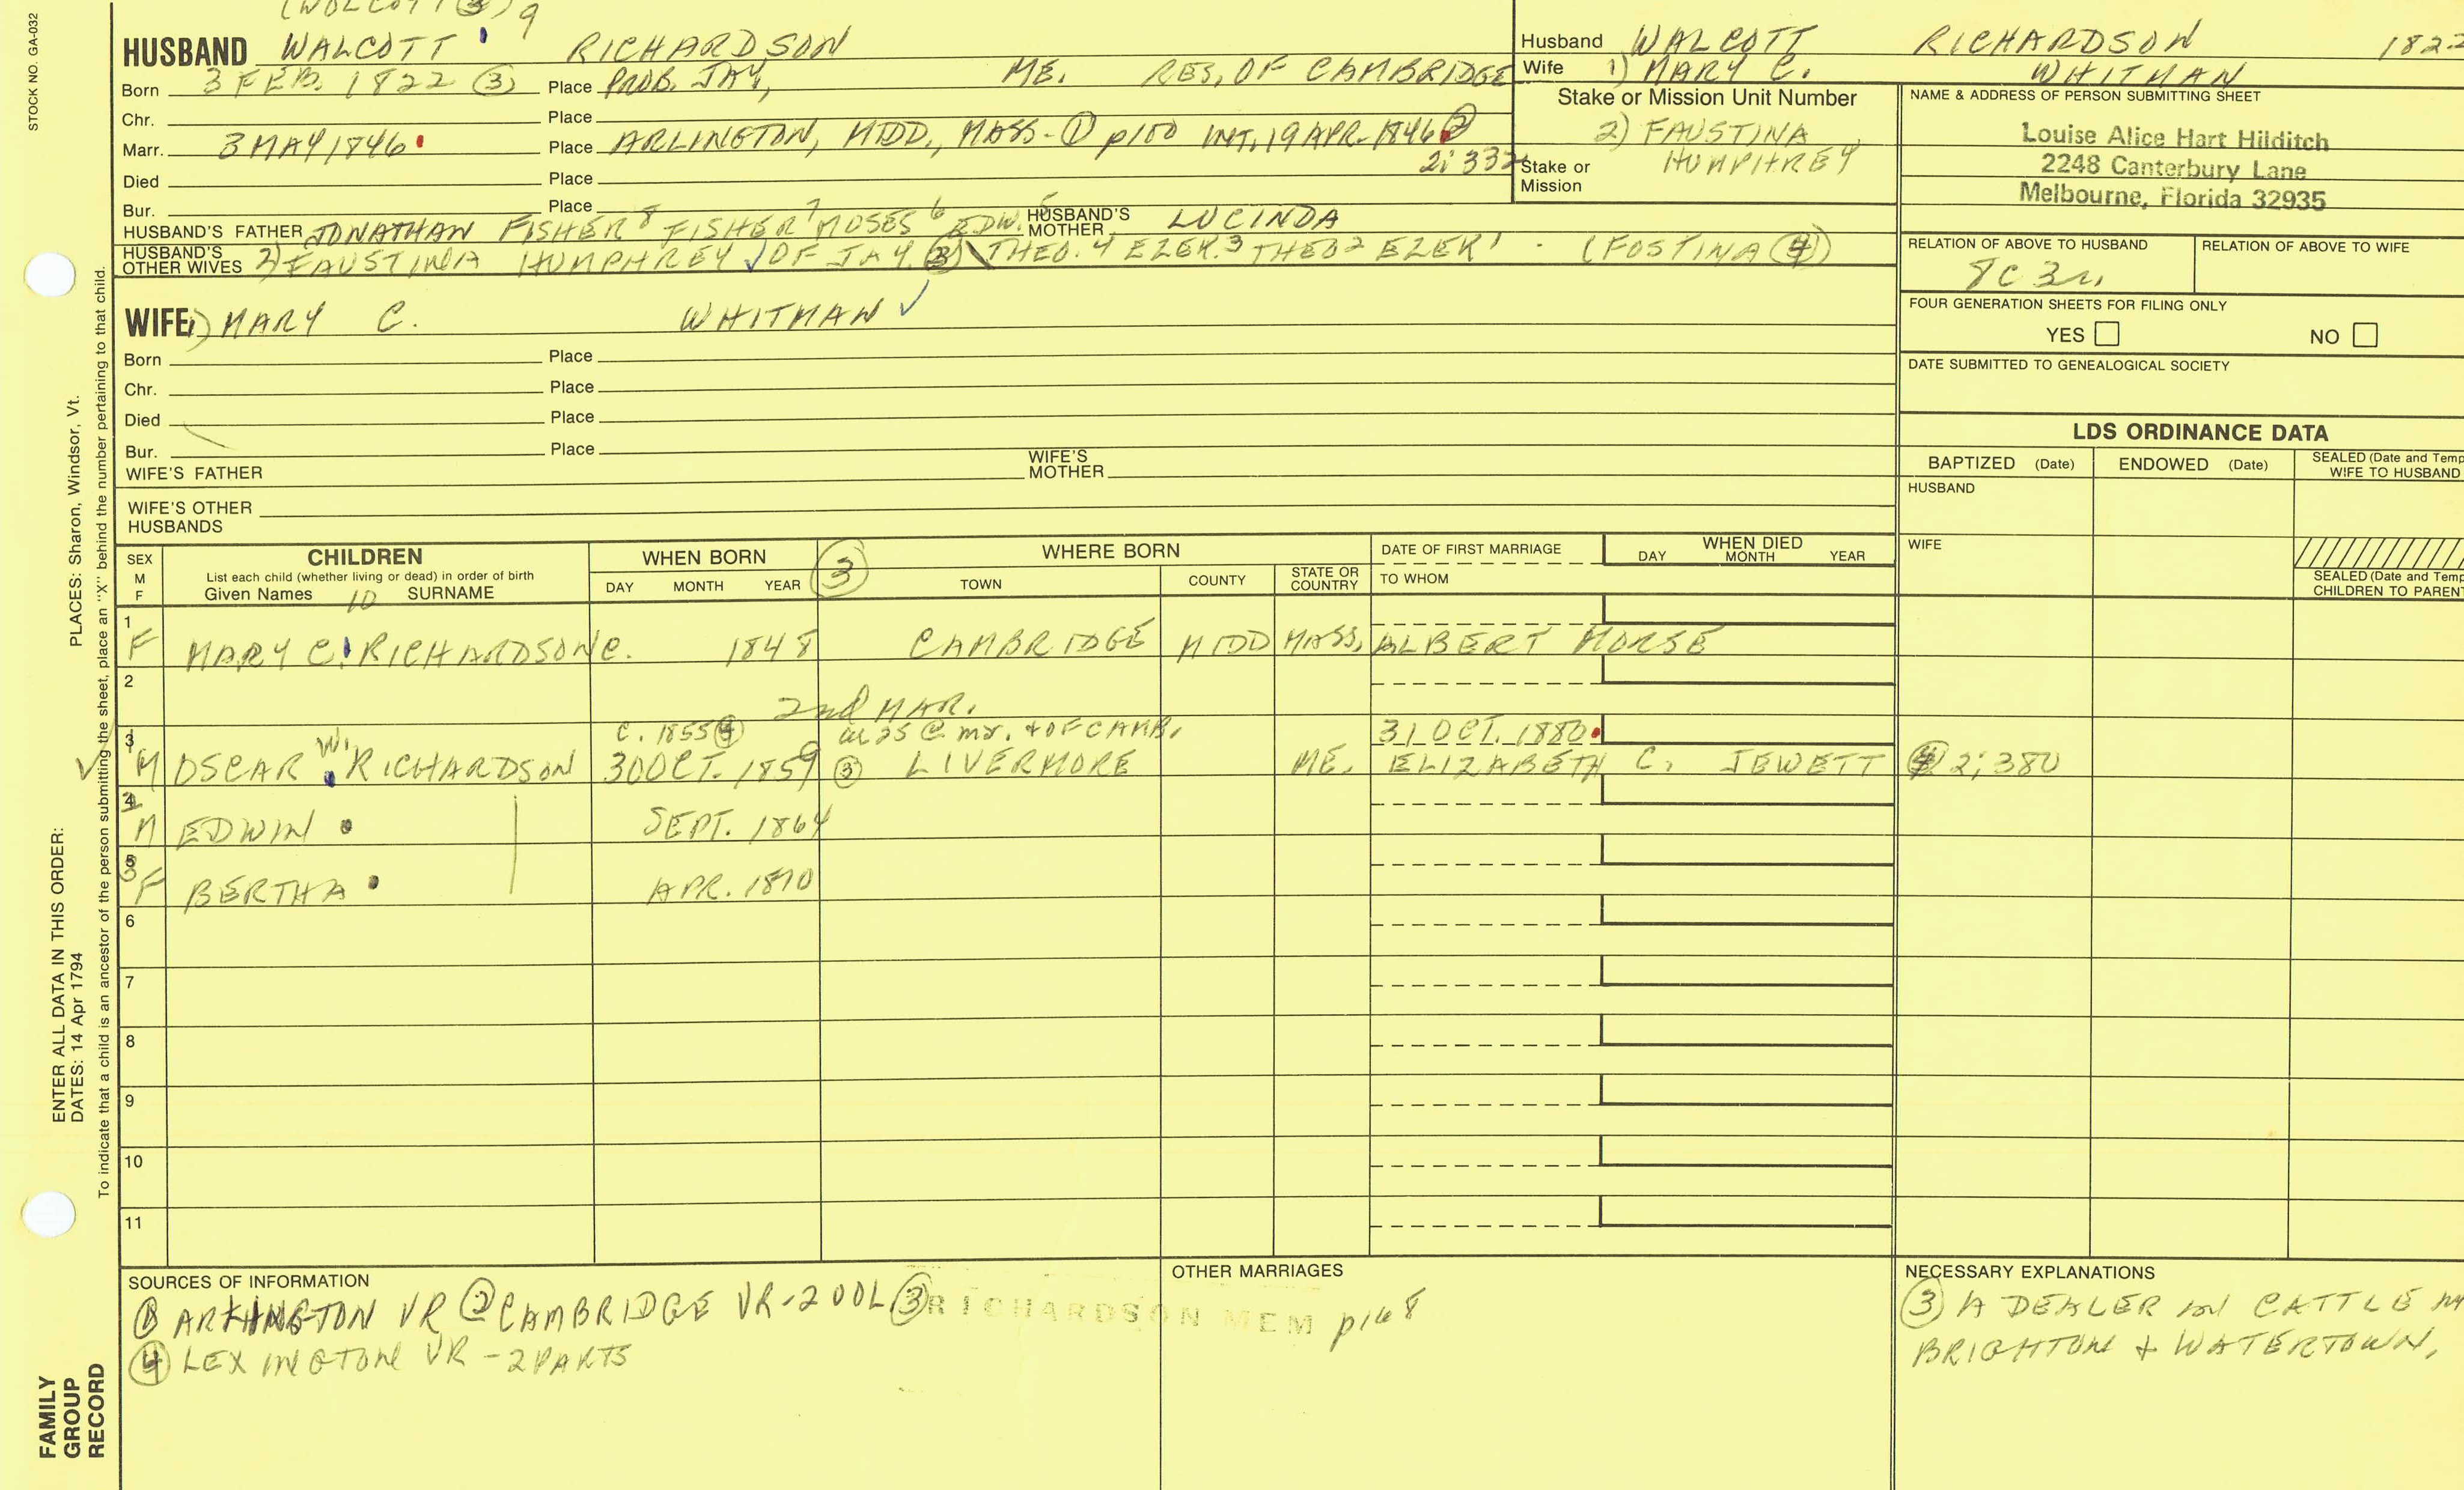 STOCK NO. GA-032
(WOLCOTT ③) 9
HUSBAND WALCOTT RICHARDSON
Born 3 FEB. 1822 ③ Place PROB. JAY, ME. RES. OF CAMBRIDGE
Chr. Place
Marr. 3 MAY 1846 Place ARLINGTON, MIDD., MASS - ① p100 INT. 19 APR. 1846 ②
2:332
Died Place
Bur. Place
HUSBAND'S FATHER JONATHAN FISHER 8 FISHER 7 MOSES 6 EDW. 5 HUSBAND'S MOTHER LUCINDA
HUSBAND'S OTHER WIVES 2) FAUSTINA HUMPHREY ✓ OF JAY. ③ \ THEO. 4 EZEK. 3 THEO 2 EZEK 1 - (FOSTINA ④)
WIFE 1) MARY C. WHITMAN ✓
Born Place
Chr. Place
Died Place
Bur. Place
WIFE'S FATHER WIFE'S MOTHER
WIFE'S OTHER HUSBANDS
Husband WALCOTT RICHARDSON 1822
Wife 1) MARY C. WHITMAN
Stake or Mission Unit Number
2) FAUSTINA
HUMPHREY
Stake or Mission
NAME & ADDRESS OF PERSON SUBMITTING SHEET
Louise Alice Hart Hilditch
2248 Canterbury Lane
Melbourne, Florida 32935
RELATION OF ABOVE TO HUSBAND RELATION OF ABOVE TO WIFE
8C 3r,
FOUR GENERATION SHEETS FOR FILING ONLY
YES NO
DATE SUBMITTED TO GENEALOGICAL SOCIETY
LDS ORDINANCE DATA
BAPTIZED (Date) ENDOWED (Date) SEALED (Date and Temp
WIFE TO HUSBAND
HUSBAND
WIFE
SEALED (Date and Temp
CHILDREN TO PARENT
SEX M F CHILDREN WHEN BORN ③ WHERE BORN DATE OF FIRST MARRIAGE WHEN DIED
List each child (whether living or dead) in order of birth
Given Names 10 SURNAME DAY MONTH YEAR TOWN COUNTY STATE OR COUNTRY TO WHOM DAY MONTH YEAR
1
F MARY C. RICHARDSON C. 1848 CAMBRIDGE MIDD MASS. ALBERT MORSE
2
2nd MAR.
3 C. 1855 ④ at 25 @ mr. + OF CAMB. 31 OCT. 1880
✓ 1 M OSCAR W. RICHARDSON 30 OCT. 1859 ③ LIVERMORE ME. ELIZABETH C. JEWETT ④ 2:380
4
2 M EDWIN SEPT. 1864
5
3 F BERTHA APR. 1870
6
7
8
9
10
11
SOURCES OF INFORMATION
① ARLINGTON VR ② CAMBRIDGE VR - 2 VOL ③ RICHARDSON MEM p168
④ LEXINGTON VR - 2 PARTS
OTHER MARRIAGES
NECESSARY EXPLANATIONS
③ A DEALER in CATTLE in
BRIGHTON + WATERTOWN.
PLACES: Sharon, Windsor, Vt.
To indicate that a child is an ancestor of the person submitting the sheet, place an "X" behind the number pertaining to that child.
ENTER ALL DATA IN THIS ORDER:
DATES: 14 Apr 1794
FAMILY
GROUP
RECORD